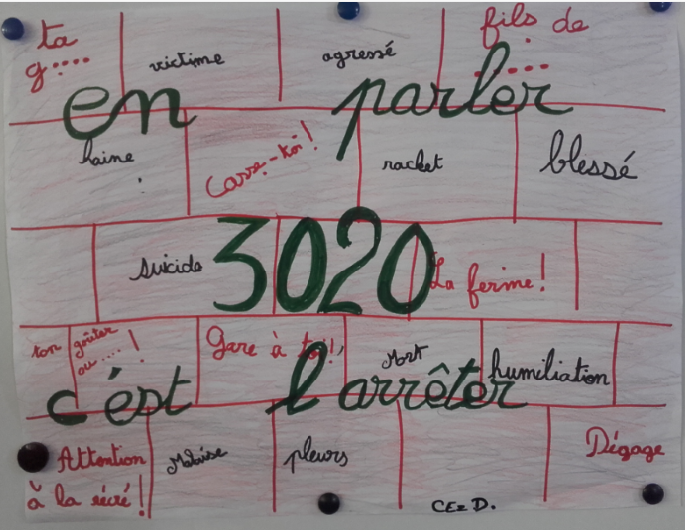 ta
g....
victime
agressé
fils de
....
en parler
haine
Casse-toi!
racket
blessé
suicide
3020
La ferme!
ton goûter
ou ....!
Gare à toi!
Mort
humiliation
c'est l'arrêter
Attention
à la récré!
pleurs
Dégage
CE2 D.